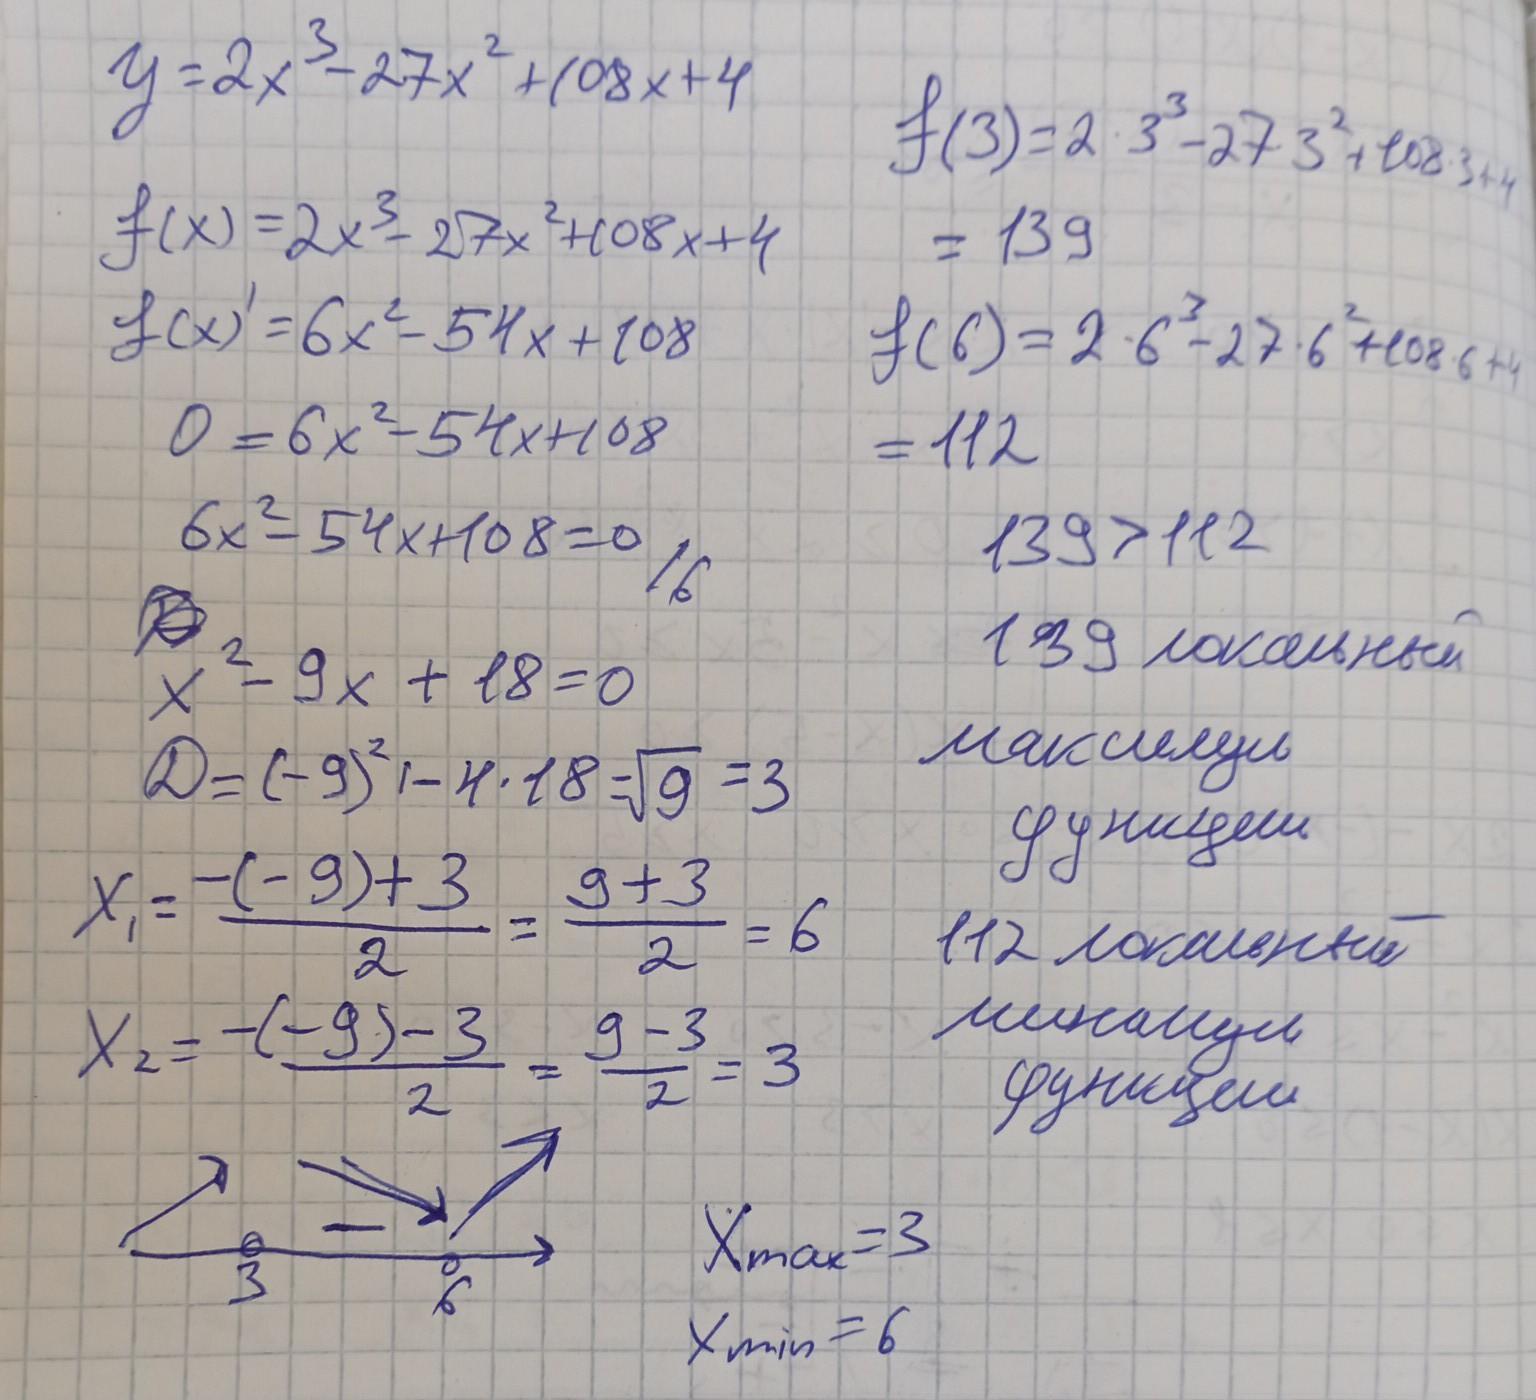 y = 2x³ - 27x² + 108x + 4
f(x) = 2x³ - 27x² + 108x + 4
f(x)' = 6x² - 54x + 108
0 = 6x² - 54x + 108
6x² - 54x + 108 = 0 /6
x² - 9x + 18 = 0
D = (-9)² - 4·18 = √9 = 3
X₁ = (-(-9)+3)/2 = (9+3)/2 = 6
X₂ = (-(-9)-3)/2 = (9-3)/2 = 3
3 − 6
f(3) = 2·3³ - 27·3² + 108·3 + 4
= 139
f(6) = 2·6³ - 27·6² + 108·6 + 4
= 112
139 > 112
139 локальный
максимум
функции
112 локальный
минимум
функции
Xmax = 3
Xmin = 6